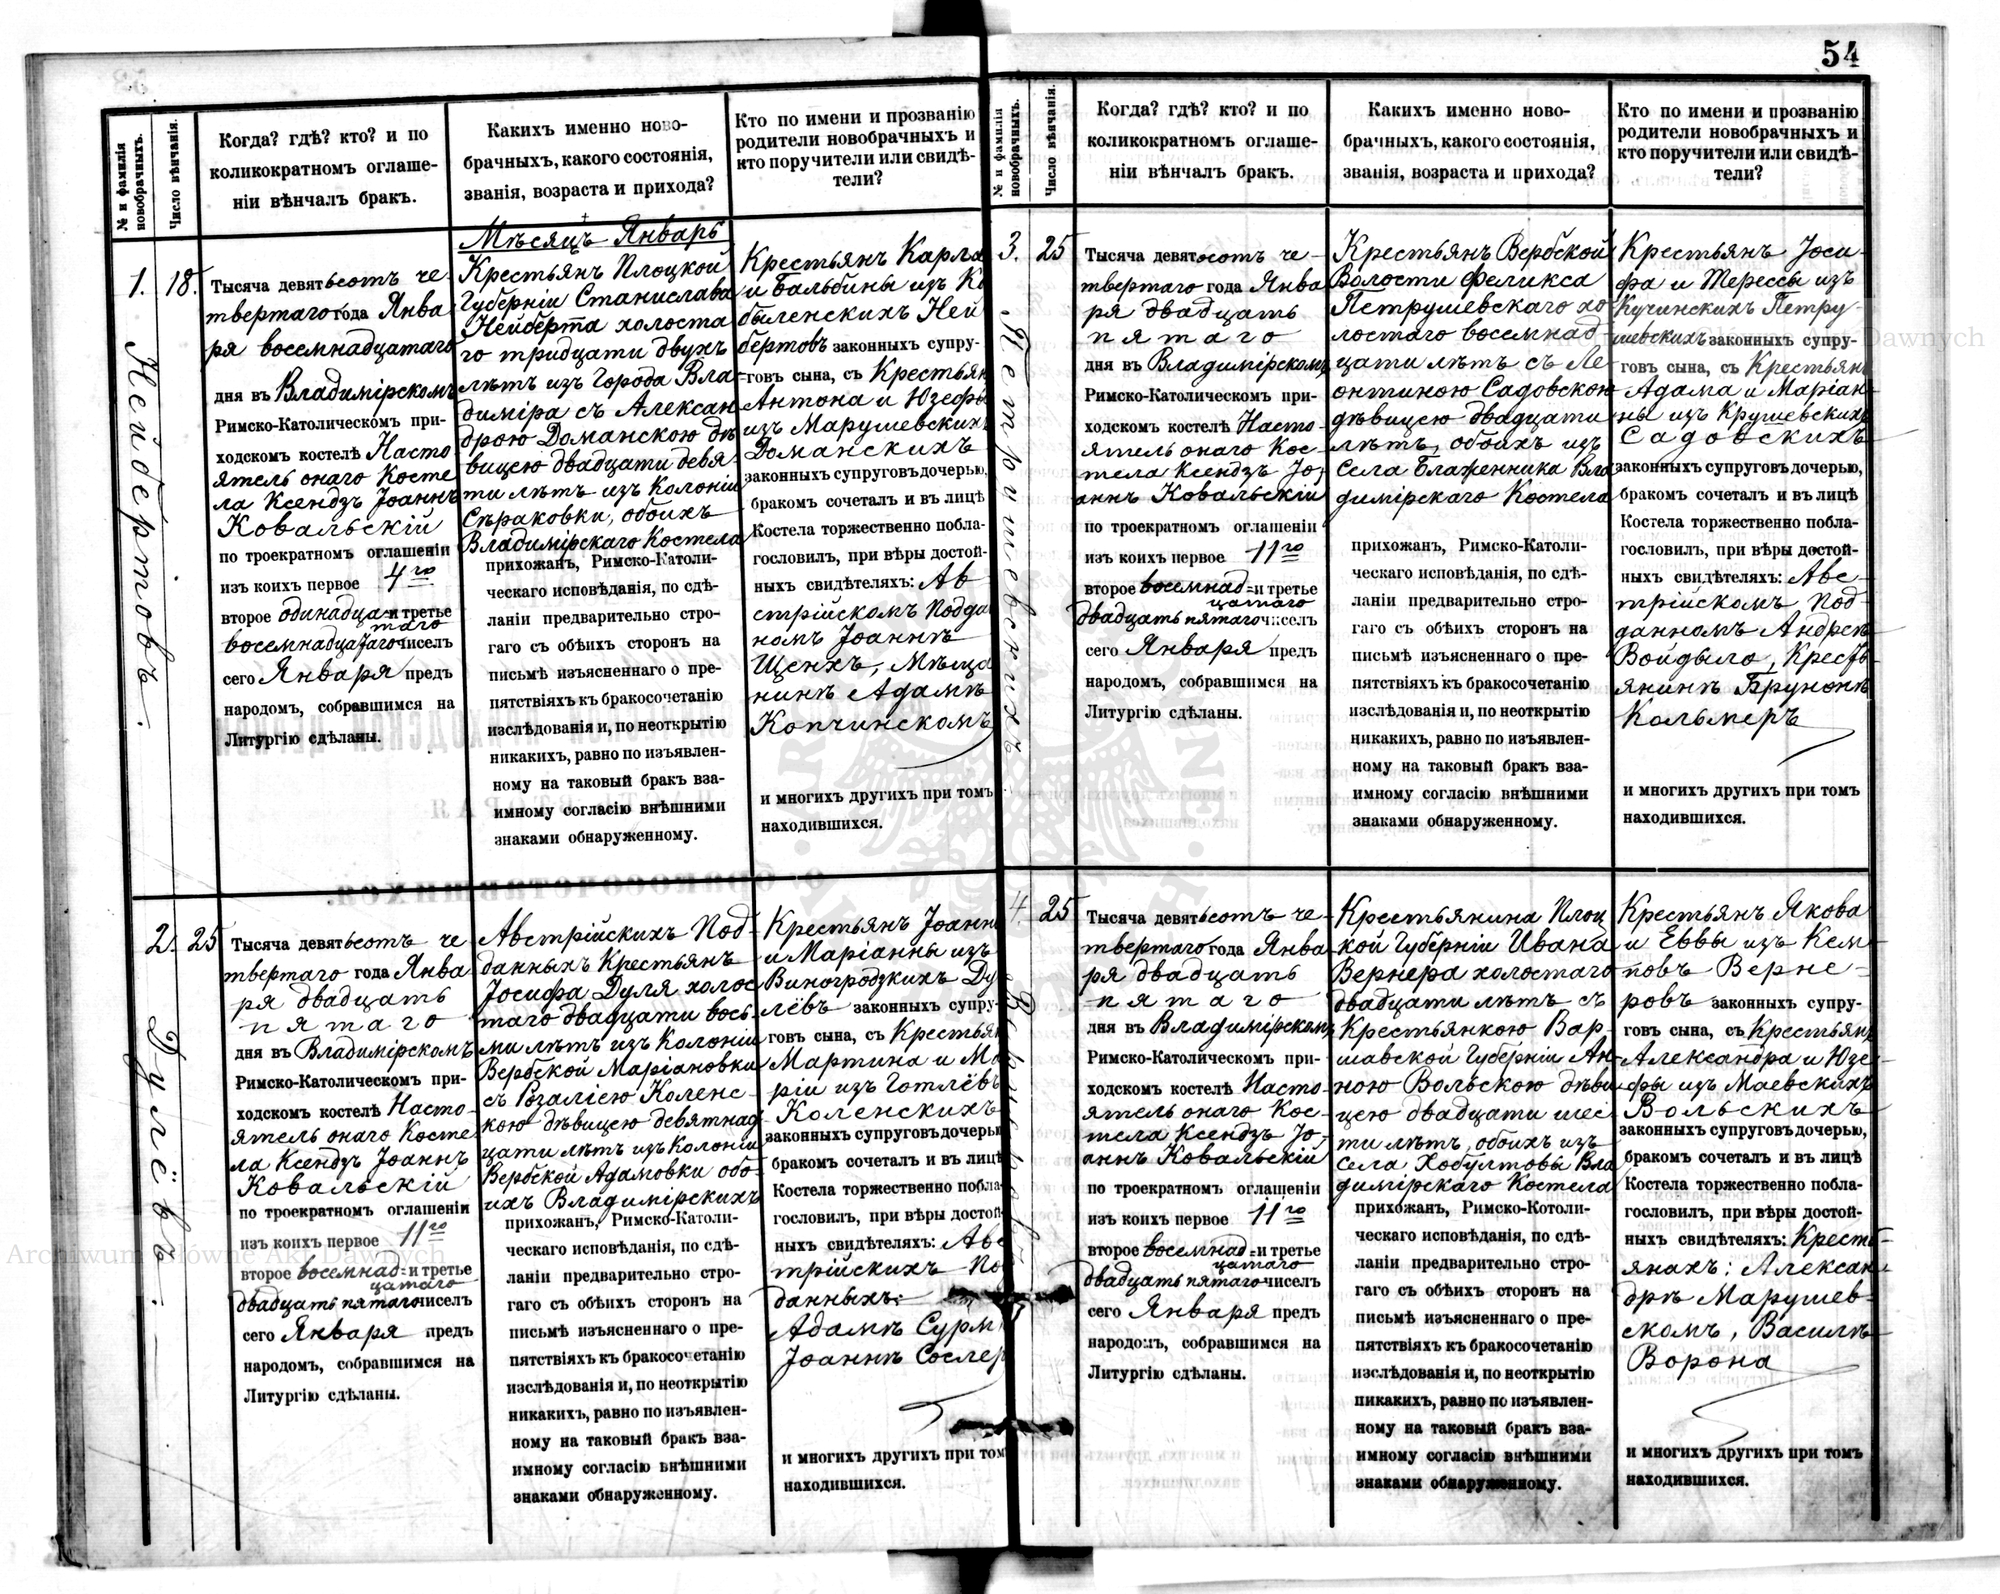 54
№ и фамилія новобрачныхъ.
Число вѣнчанія.
Когда? гдѣ? кто? и по
коликократномъ оглаше-
ніи вѣнчалъ бракъ.
Какихъ именно ново-
брачныхъ, какого состоянія,
званія, возраста и прихода?
Кто по имени и прозванію
родители новобрачныхъ и
кто поручители или свидѣ-
тели?
1.
Нейбертовъ.
18.
Тысяча девятьсотъ че-
твертаго года Янва
ря восемнадцатаго
дня въ Владимірскомъ
Римско-Католическомъ при-
ходскомъ костелѣ Насто
ятель онаго Косте
ла Ксендзъ Іоаннъ
Ковальскій
по троекратномъ оглашеніи
изъ коихъ первое 4го
второе одинадца= и третье
таго
восемнадцатаго чиселъ
сего Января предъ
народомъ, собравшимся на
Литургію сдѣланы.
Мѣсяцъ Январь
Крестьянъ Плоцкой
Губерніи Станислава
Нейберта холоста
го тридцати двухъ
лѣтъ изъ Города Вла
диміра съ Алексан
дрою Доманскою дѣ
вицею двадцати девя
ти лѣтъ изъ Колоніи
Сѣраковки, обоихъ
Владимірскаго Костела
прихожанъ, Римско-Католи-
ческаго исповѣданія, по сдѣ-
ланіи предварительно стро-
гаго съ обѣихъ сторонъ на
письмѣ изъясненнаго о пре-
пятствіяхъ къ бракосочетанію
изслѣдованія и, по неоткрытію
никакихъ, равно по изъявлен-
ному на таковый бракъ вза-
имному согласію внѣшними
знаками обнаруженному.
Крестьянъ Карла
и Бальбины изъ Ко
быленскихъ Ней
бертовъ законныхъ супру-
говъ сына, съ Крестьян
Антона и Юзефы
изъ Марушевскихъ
Доманскихъ
законныхъ супруговъ дочерью,
бракомъ сочеталъ и въ лицѣ
Костела торжественно побла-
гословилъ, при вѣры достой-
ныхъ свидѣтеляхъ: Ав
стрійскомъ Подда
номъ Іоаннѣ
Щенхъ, Мѣща
нинѣ Адамѣ
Копчинскомъ
и многихъ другихъ при томъ
находившихся.
2.
Дулёвъ.
25
Тысяча девятьсотъ че
твертаго года Янва
ря двадцать
пятаго
дня въ Владимірскомъ
Римско-Католическомъ при-
ходскомъ костелѣ Насто-
ятель онаго Косте
ла Ксендзъ Іоаннъ
Ковальскій
по троекратномъ оглашеніи
изъ коихъ первое 11го
второе восемнад= и третье
цатаго
двадцать пятаго чиселъ
сего Января предъ
народомъ, собравшимся на
Литургію сдѣланы.
Австрійскихъ Под-
данныхъ Крестьянъ
Іосифа Дуля холос
таго двадцати вось
ми лѣтъ изъ Колоніи
Вербской Маріановки
съ Розаліею Коленс-
кою дѣвицею девятнад
цати лѣтъ изъ Колоніи
Вербской Адамовки обо-
ихъ Владимірскихъ
прихожанъ, Римско-Католи-
ческаго исповѣданія, по сдѣ-
ланіи предварительно стро-
гаго съ обѣихъ сторонъ на
письмѣ изъясненнаго о пре-
пятствіяхъ къ бракосочетанію
изслѣдованія и, по неоткрытію
никакихъ, равно по изъявлен-
ному на таковый бракъ вза-
имному согласію внѣшними
знаками обнаруженному.
Крестьянъ Іоанна
и Маріанны изъ
Виногродзкихъ Ду
лёвъ законныхъ супру-
говъ сына, съ Крестьян
Мартина и Ма
ріи изъ Готлёвъ
Коленскихъ
законныхъ супруговъ дочерью
бракомъ сочеталъ и въ лицѣ
Костела торжественно побла-
гословилъ, при вѣры достой-
ныхъ свидѣтеляхъ: Авс
трійскихъ Под
данныхъ:
Адамѣ Сурм
Іоаннѣ Сослер
и многихъ другихъ при том
находившихся.
№ и фамилія новобрачныхъ.
Число вѣнчанія.
Когда? гдѣ? кто? и по
коликократномъ оглаше-
ніи вѣнчалъ бракъ.
Какихъ именно ново-
брачныхъ, какого состоянія,
званія, возраста и прихода?
Кто по имени и прозванію
родители новобрачныхъ и
кто поручители или свидѣ-
тели?
3.
Петрушевскихъ
25
Тысяча девятьсотъ че-
твертаго года Янва
ря двадцать
пятаго
дня въ Владимірскомъ
Римско-Католическомъ при-
ходскомъ костелѣ Насто-
ятель онаго Кос-
тела Ксендзъ Іо-
аннъ Ковальскій
по троекратномъ оглашеніи
изъ коихъ первое 11го
второе восемнад= и третье
цатаго
двадцать пятаго чиселъ
сего Января предъ
народомъ, собравшимся на
Литургію сдѣланы.
Крестьянъ Вербской
Волости Феликса
Петрушевскаго хо
лостаго восемнад
цати лѣтъ съ Ле
онтиною Садовскою
дѣвицею двадцати
лѣтъ, обоихъ изъ
Села Блаженника Вла
димірскаго Костела
прихожанъ, Римско-Католи-
ческаго исповѣданія, по сдѣ-
ланіи предварительно стро-
гаго съ обѣихъ сторонъ на
письмѣ изъясненнаго о пре-
пятствіяхъ къ бракосочетанію
изслѣдованія и, по неоткрытію
никакихъ, равно по изъявлен-
ному на таковый бракъ вза-
имному согласію внѣшними
знаками обнаруженному.
Крестьянъ Іоса-
фа и Терессы изъ
Кучинскихъ Петру-
шевскихъ законныхъ супру-
говъ сына, съ Крестьян
Адама и Маріан-
ны изъ Крушевскихъ
Садовскихъ
законныхъ супруговъ дочерью,
бракомъ сочеталъ и въ лицѣ
Костела торжественно побла-
гословилъ, при вѣры достой-
ныхъ свидѣтеляхъ: Авс-
трійскомъ Под-
данномъ Андреѣ
Войдыло, Кресть-
янинѣ Брунонѣ
Кольмеръ
и многихъ другихъ при томъ
находившихся.
4.
25
Тысяча девятьсотъ че-
твертаго года Янва
ря двадцать
пятаго
дня въ Владимірскомъ
Римско-Католическомъ при-
ходскомъ костелѣ Насто-
ятель онаго Кос-
тела Ксендзъ Іо-
аннъ Ковальскій
по троекратномъ оглашеніи
изъ коихъ первое 11го
второе восемнад= и третье
цатаго
двадцать пятаго чиселъ
сего Января предъ
народомъ, собравшимся на
Литургію сдѣланы.
Крестьянина Плоц
кой Губерніи Ивана
Вернера холостаго
двадцати лѣтъ съ
Крестьянкою Вар-
шавской Губерніи Ан-
ною Вольскою дѣви
цею двадцати шес
ти лѣтъ, обоихъ изъ
села Хобултовы Вла
димірскаго Костела
прихожанъ, Римско-Котоли-
ческаго исповѣданія, по сдѣ-
ланіи предварительно стро-
гаго съ обѣихъ сторонъ на
письмѣ изъясненнаго о пре-
пятствіяхъ къ бракосочетанію
изслѣдованія и, по неоткрытію
никакихъ, равно по изъявлен-
ному на таковый бракъ вза-
имному согласію внѣшними
знаками обнаруженному.
Крестьянъ Якова
и Еввы изъ Кем-
повъ Верне-
ровъ законныхъ супру-
говъ сына, съ Крестьян
Александра и Юзе-
фы изъ Маевскихъ
Вольскихъ
законныхъ супруговъ дочерью,
бракомъ сочеталъ и въ лицѣ
Костела торжественно побла-
гословилъ, при вѣры достой-
ныхъ свидѣтеляхъ: Кресть-
янахъ: Алексан-
дрѣ Марушев-
скомъ, Василѣ
Ворона
и многихъ другихъ при томъ
находившихся.
Archiwum Główne Akt Dawnych